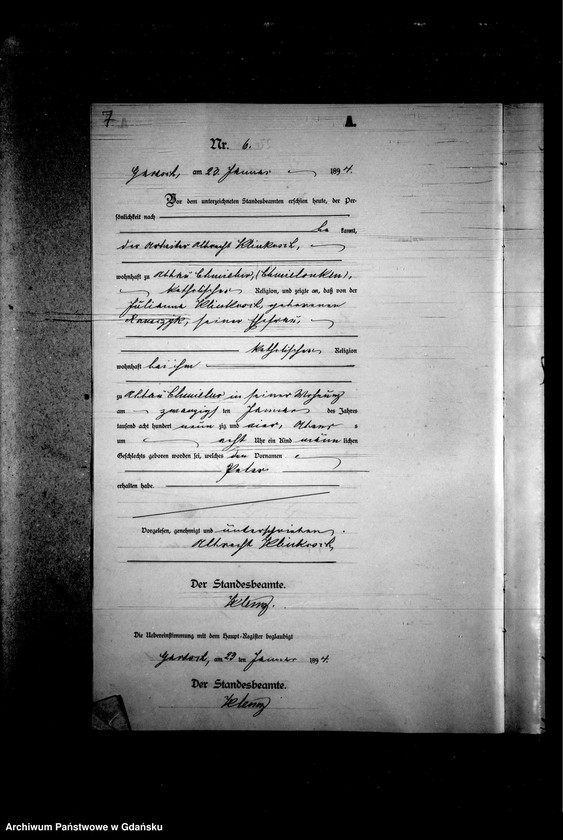 7
A.
Nr. 6.
am 23. Januar 1894.
Vor dem unterzeichneten Standesbeamten erschien heute, der Per-
sönlichkeit nach
be kannt,
der Arbeiter Albrecht Klinkosch,
wohnhaft zu Abbau Chmielno,
katholischer Religion, und zeigte an, daß von der
Julianna Klinkosch, geborenen
seiner Ehefrau,
katholischer Religion
wohnhaft bei ihm
zu Abbau Chmielno in seiner Wohnung
am zwanzigsten Januar des Jahres
tausend acht hundert neun zig und vier, Abends
um acht Uhr ein Kind männ lichen
Geschlechts geboren worden sei, welches den Vornamen
Peter
erhalten habe.
Vorgelesen, genehmigt und unterschrieben.
Albrecht Klinkosch
Der Standesbeamte.
Die Uebereinstimmung mit dem Haupt-Register beglaubigt
am 23 ten Januar 1894.
Der Standesbeamte.
Archiwum Państwowe w Gdańsku